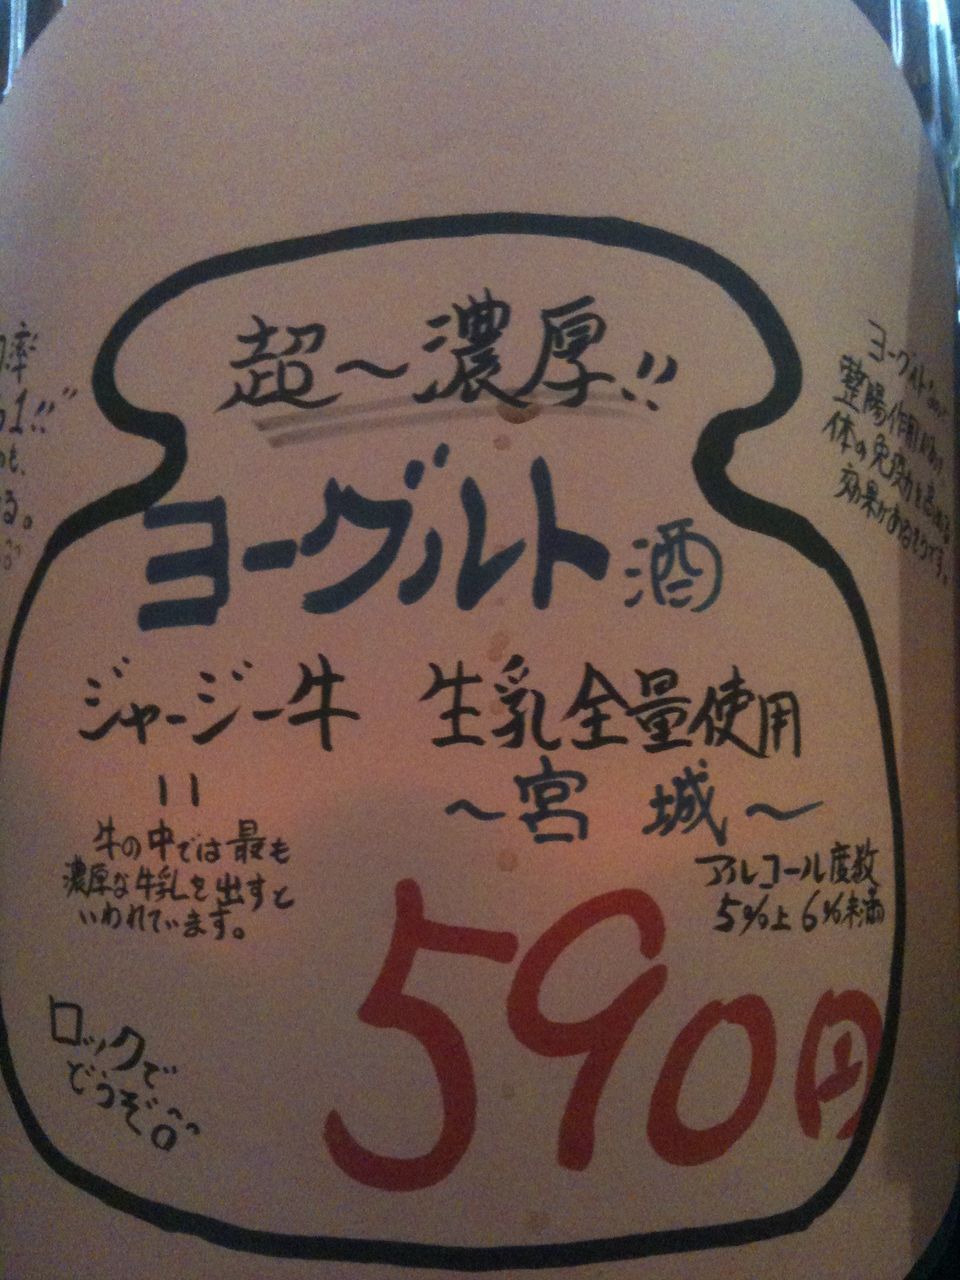 超～濃厚!!
ヨーグルト酒
ジャージー牛 生乳全量使用
～宮城～
=
牛の中では最も
濃厚な牛乳を出すと
いわれています。
アルコール度数
5%上6%未満
590円
ロックで
どうぞ
ヨーグルト
整腸作用
体の免疫力を高める
効果があるそうです。
率
1!!
も、
る。